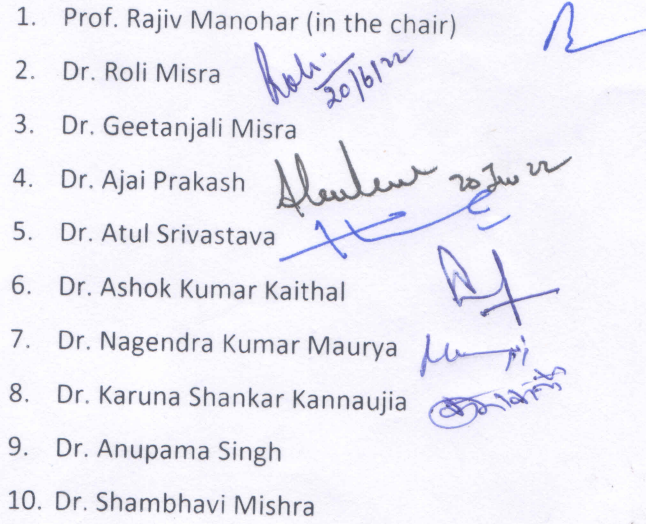 1. Prof. Rajiv Manohar (in the chair)
2. Dr. Roli Misra Roli 20/6/22
3. Dr. Geetanjali Misra
4. Dr. Ajai Prakash 20 Jun 22
5. Dr. Atul Srivastava
6. Dr. Ashok Kumar Kaithal
7. Dr. Nagendra Kumar Maurya
8. Dr. Karuna Shankar Kannaujia
9. Dr. Anupama Singh
10. Dr. Shambhavi Mishra